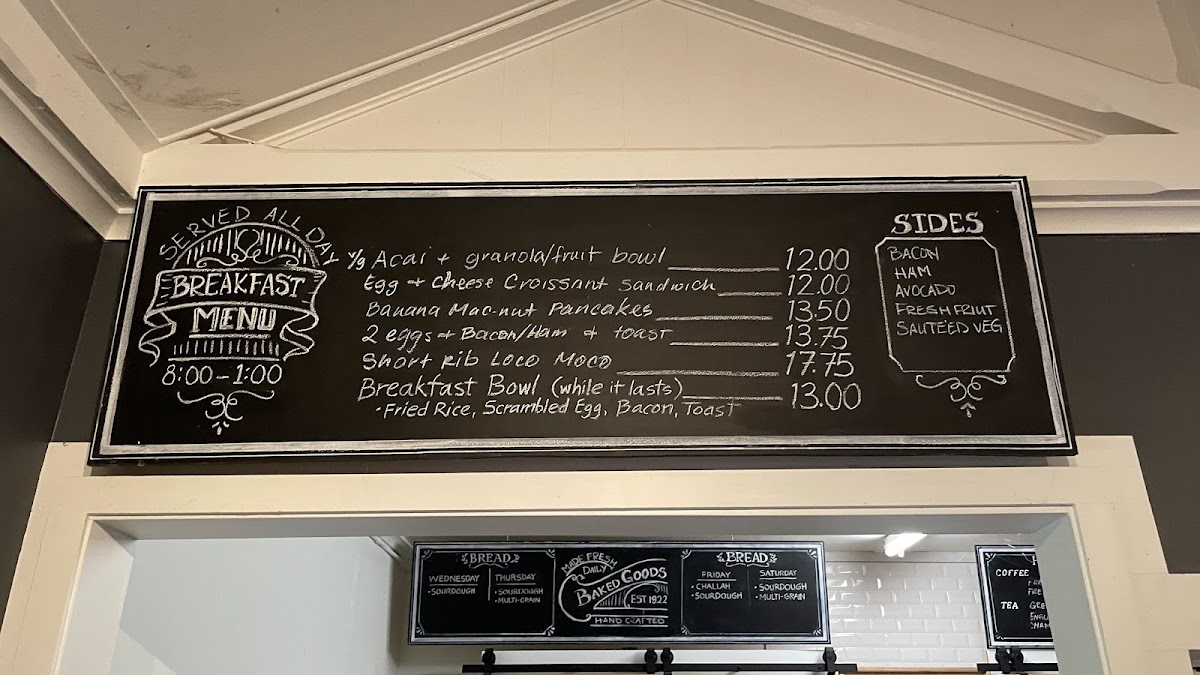 SERVED ALL DAY
BREAKFAST
MENU
8:00-1:00
V/g Acai + granola/fruit bowl 12.00
Egg + Cheese Croissant Sandwich 12.00
Banana Mac-nut Pancakes 13.50
2 eggs + Bacon/Ham + toast 13.75
Short Rib Loco Moco 17.75
Breakfast Bowl (while it lasts) 13.00
•Fried Rice, Scrambled Egg, Bacon, Toast
SIDES
BACON
HAM
AVOCADO
FRESH FRIUT
SAUTE'ED VEG
BREAD
WEDNESDAY
•SOURDOUGH
THURSDAY
•SOURDOUGH
•MULTI-GRAIN
MADE FRESH
DAILY
BAKED GOODS
EST 1922
HAND CRAFTED
BREAD
FRIDAY
•CHALLAH
•SOURDOUGH
SATURDAY
•SOURDOUGH
•MULTI-GRAIN
COFFEE
TEA